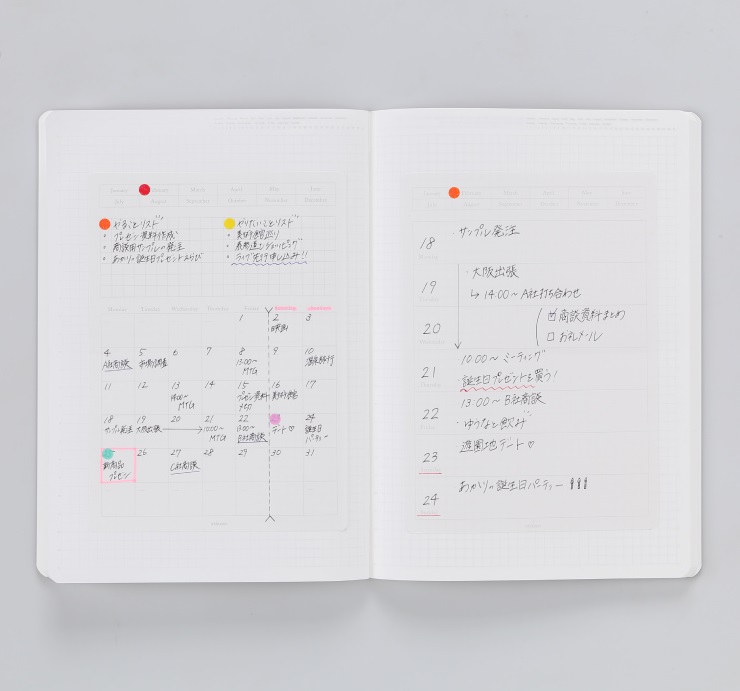 January
March
April
May
June
July
August
September
October
November
December
やることリスト
・プレゼン資料作成
・商談用サンプルの発注
・あかりの誕生日プレゼントえらび
やりたいことリスト
・美術館巡り
・ライブ先行申し込み!!
Monday Tuesday Wednesday Thursday Friday
1 2 3
映画
4 5 6 7 8 9 10
A社商談
市場調査
13:00〜
MTG
温泉旅行
11 12 13 14 15 16 17
14:00〜
MTG
プレゼン資料
〆切
18 19 20 21 22 24
サンプル発注
大阪出張
10:00〜
MTG
13:00〜
B社商談
デート♡
誕生日
パーティー
26 27 28 29 30 31
新商品
プレゼン
C社商談
18
・サンプル発注
19
・大阪出張
↳ 14:00〜 A社打ち合わせ
20
☑ 商談資料まとめ
□ お礼メール
21
・10:00〜 ミーティング
・誕生日プレゼントを買う!
22
13:00〜 B社商談
・ゆうなと飲み
23
遊園地デート♡
24
・あかりの誕生日パーティー